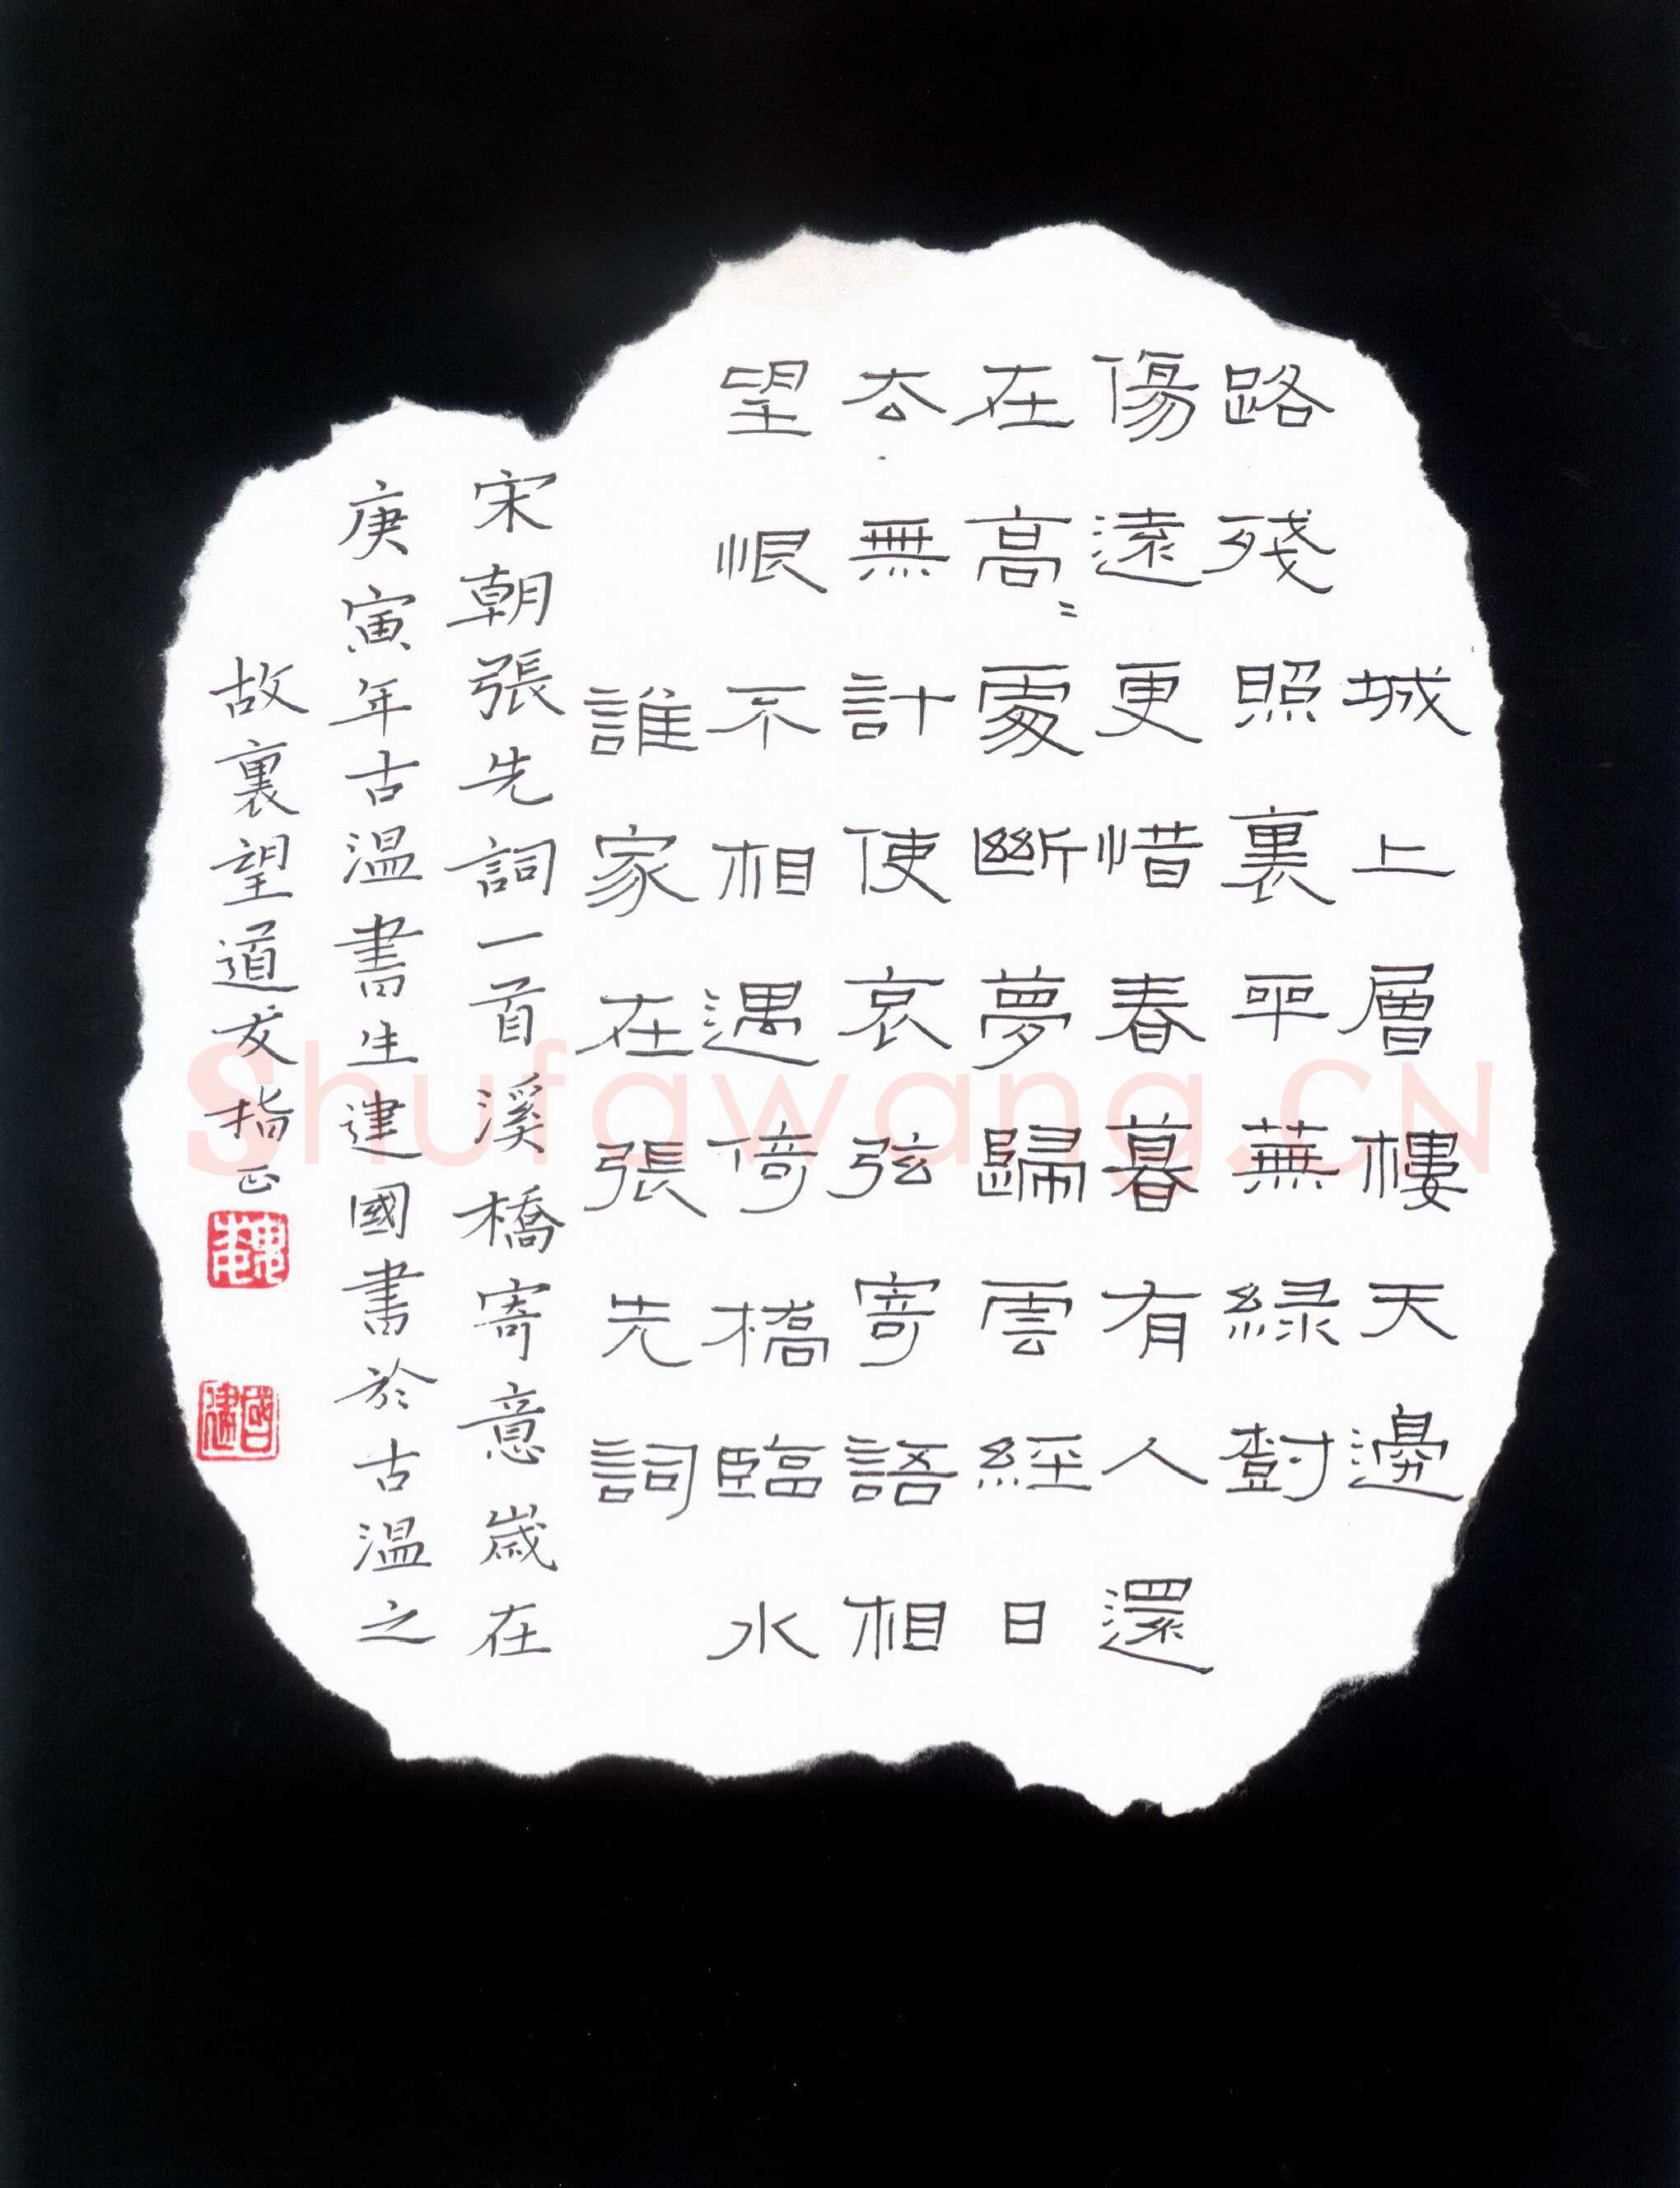 城上層樓天邊
路殘照裏平蕪綠樹
傷遠更惜春暮有人還
在高〻處斷夢歸雲經日
去無計使哀弦寄語相
望恨不相遇倚橋臨水
誰家在張先詞
宋朝張先詞一首溪橋寄意歲在
庚寅年古溫書生建國書於古溫之
故裏望道友指正
魏
國建
Shufawang.CN